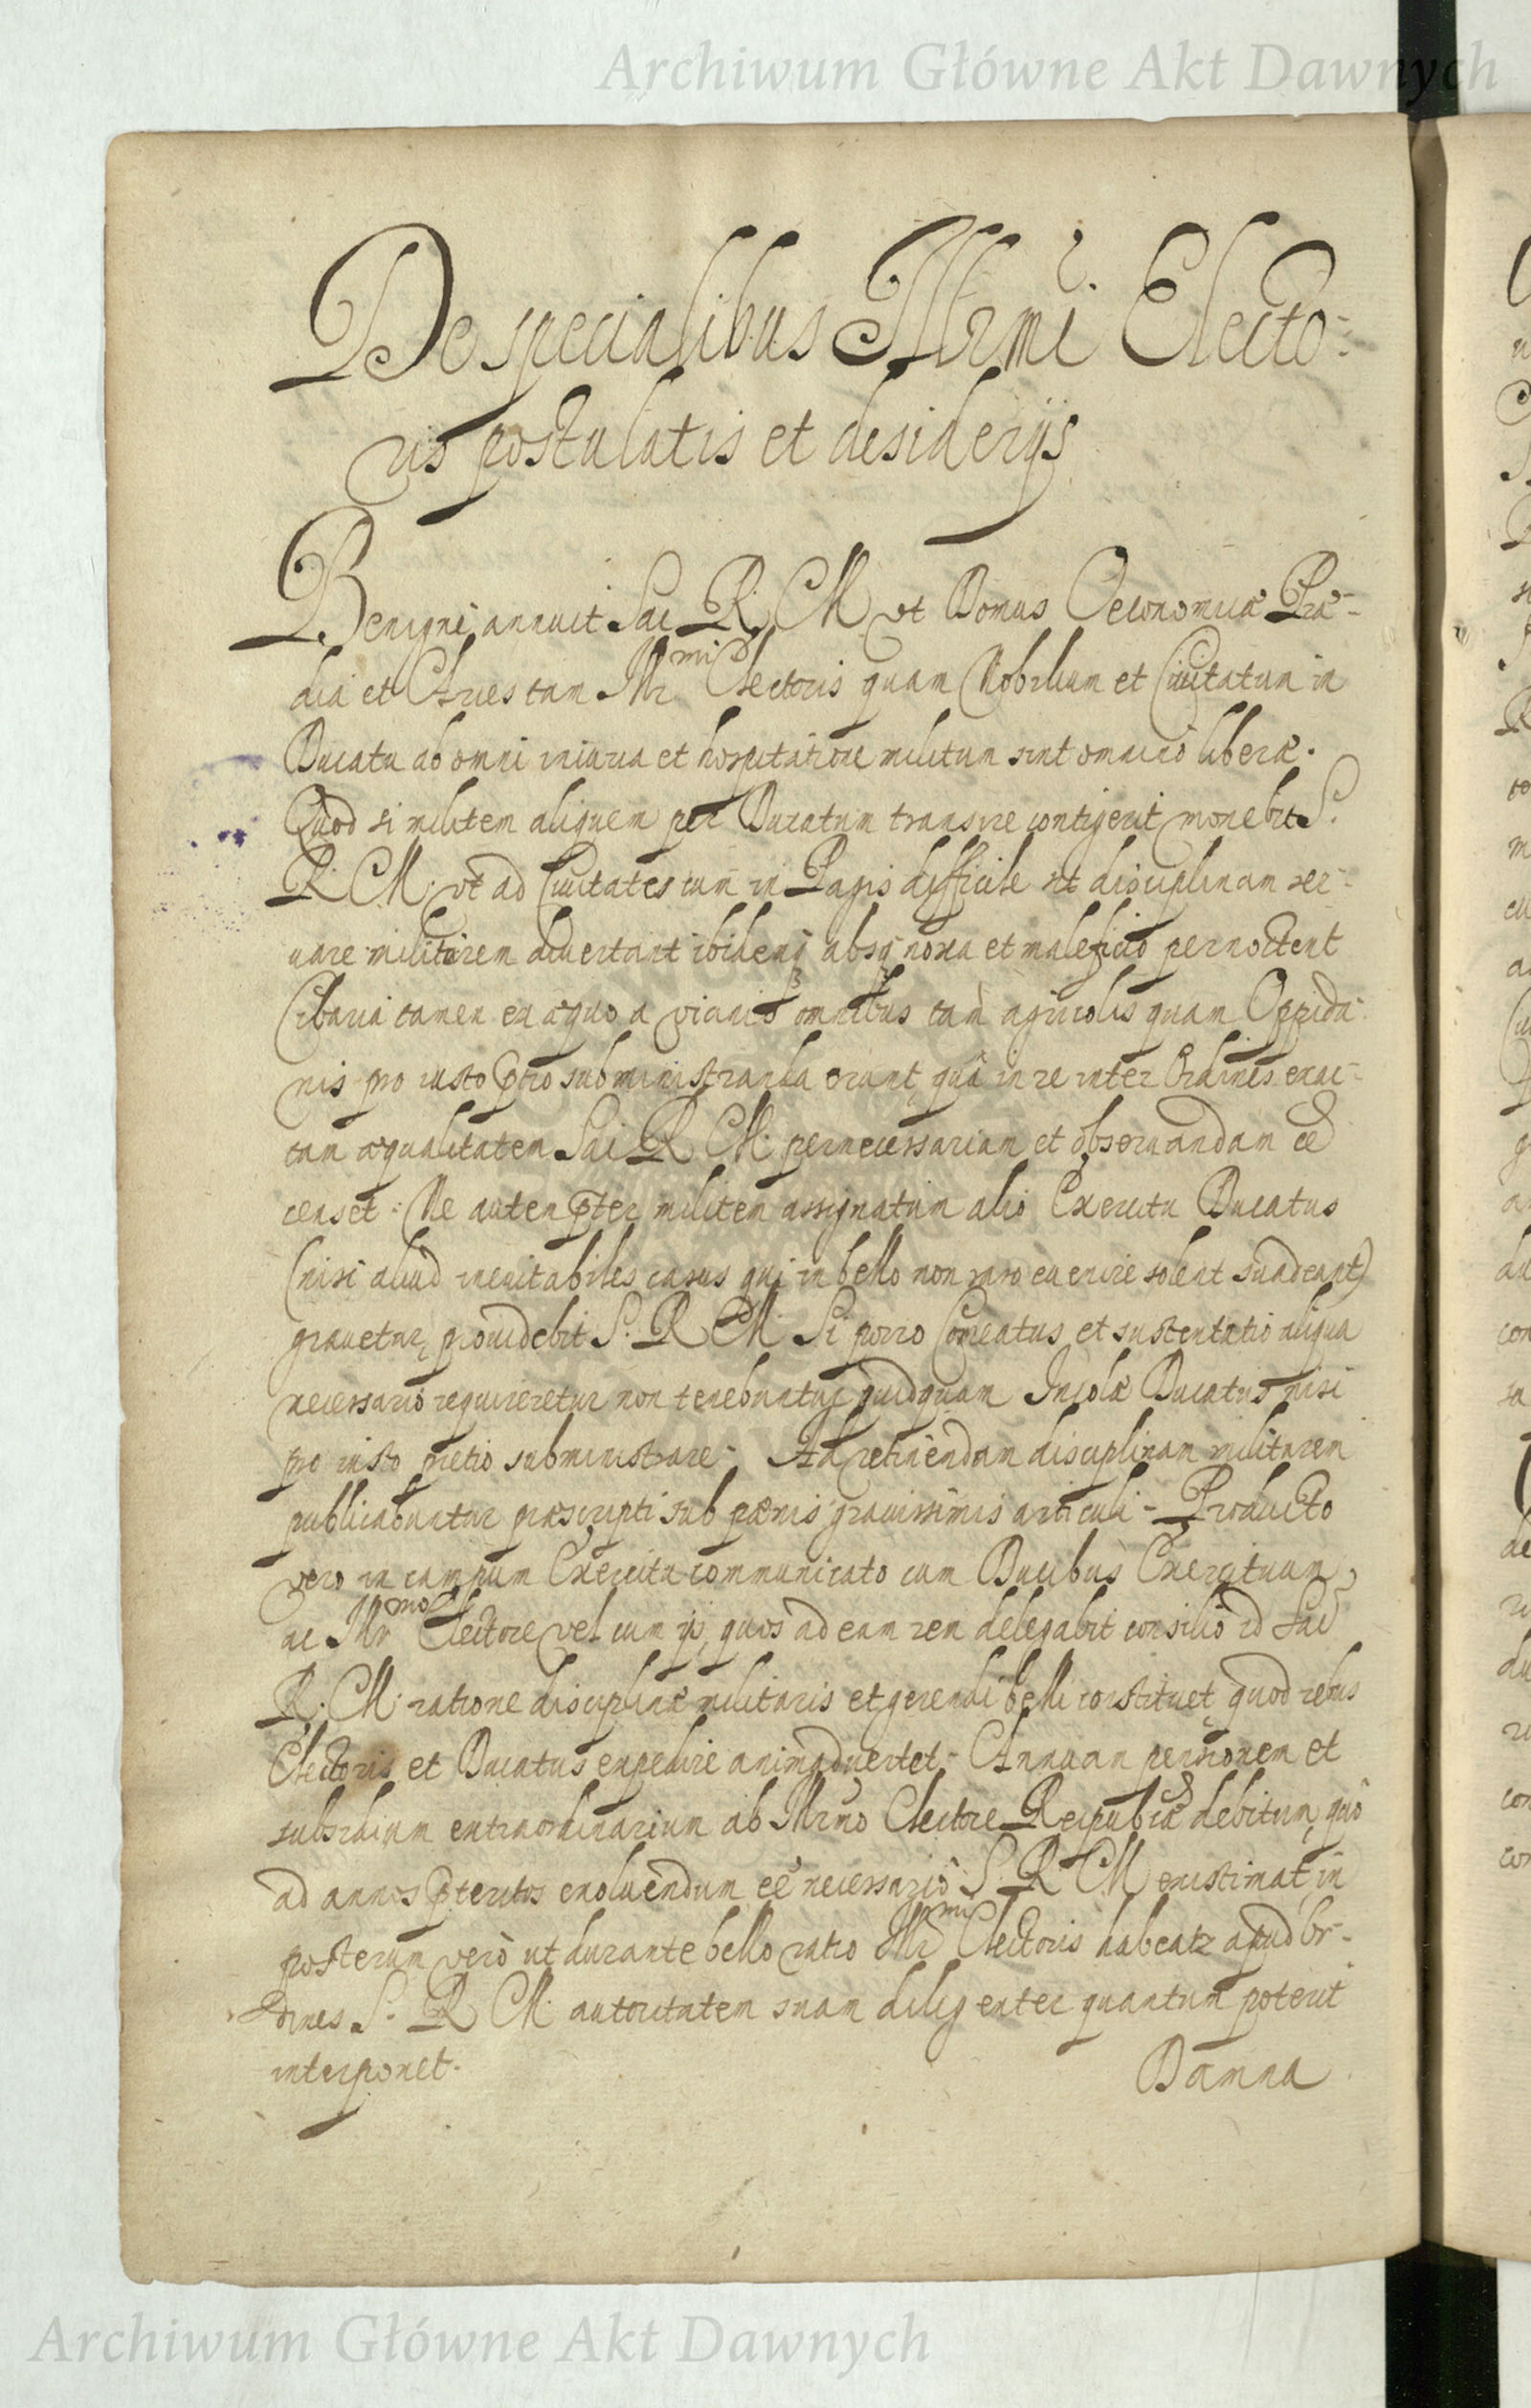 Archiwum Główne Akt Dawnych
De specialibus Illrmi Electo-
ris postulatis et desiderijs
Benigne annuit Sac R. M. vt Domus Oeconomicæ Præ-
dia et Arces tam Illr mi Electoris quam Nobilium et Ciuitatum in
Ducatu ab omni iniuria et hospitatione militum sint omnino liberæ.
Quod si militem aliquem per Ducatum transire contigerit monebit S.
R. M. vt ad Ciuitates cum in Pagis difficile sit disciplinam ser-
uare militarem diuertant ibidemq absq noxa et maleficio pernoctent
Cibaria tamen ex æquo a vicinis omnibus tam agricolis quam Oppida-
nis pro iusto ptio subministranda erunt, qua in re inter Ordines exac-
tam æqualitatem Sac R M. pernecessariam et obseruandam eē
censet. Ne autem pter militem assignatum alio Exercitu Ducatus
(nisi aliud ineuitabiles casus qui in bello non raro euenire solent suadeant)
grauetur, prouidebit S. R M. Si porro Comeatus et sustentatio aliqua
necessario requireretur non tenebuntur quidquam Incolæ Ducatus nisi
pro iusto pretio subministrare. Ad retinendam disciplinam militarem
publicabuntur præscripti sub pænis grauissimis articuli. Producto
vero in campum Exercitu communicato cum Ducibus Exercituum
ac Illr mo Electore vel cum ijs, quos ad eam rem delegabit consilio id Sac
R. M. ratione disciplinæ militaris et gerendi belli constituet, quod rebus
Electoris et Ducatus expedire animaduertet. Annuam pensionem et
subsidium extraordinarium ab Illrmo Electore Reipubcæ debitum, quo
ad annos pteritos exoluendum eē necessario S. R M existimat, in
posterum verò ut durante bello ratio Illr mi Electoris habeatr apud Or-
dines S. R M. autoritatem suam diligenter quantum poterit
interponet.
Damna
Archiwum Główne Akt Dawnych